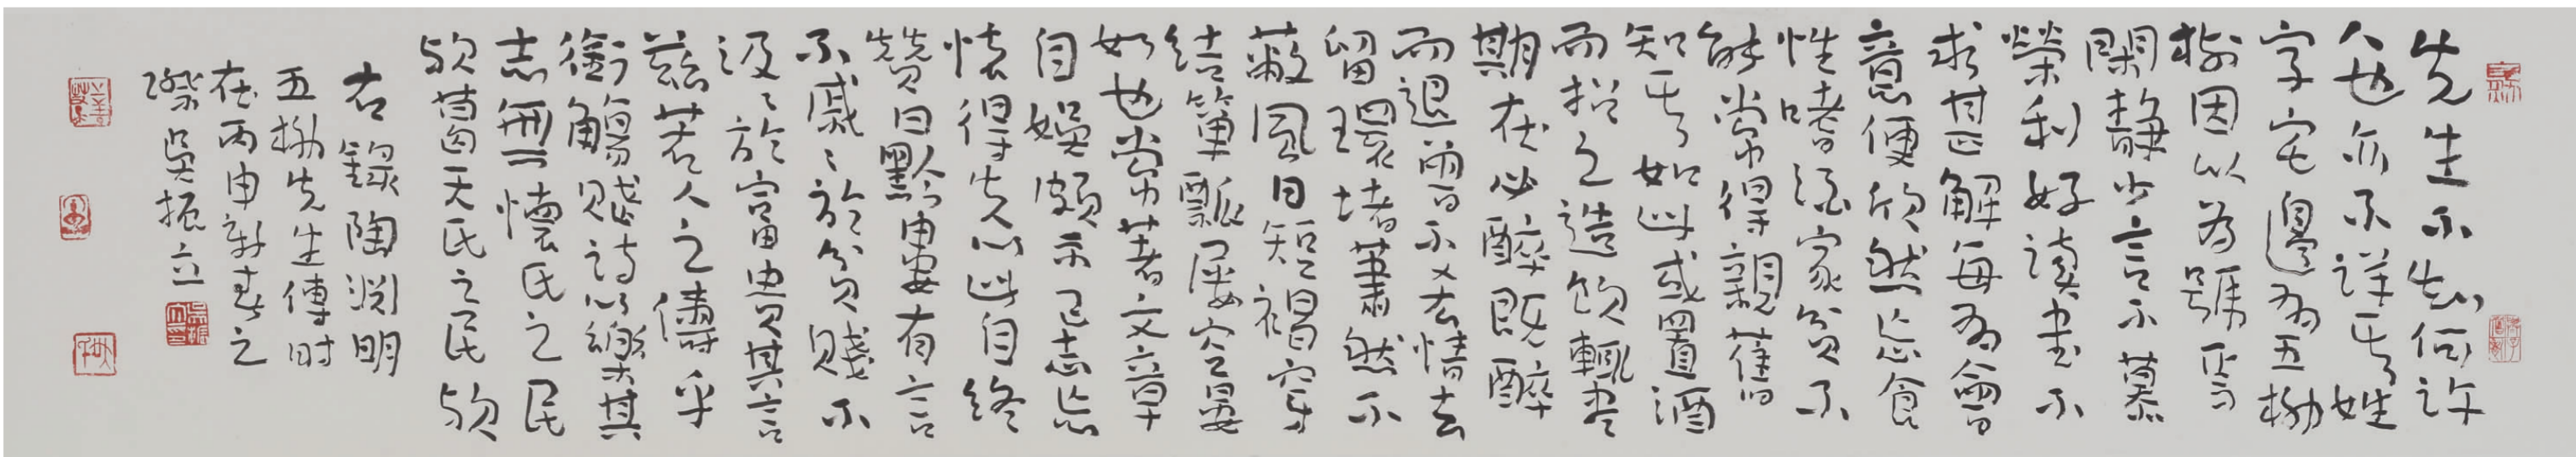 先生不知何許
人也亦不詳其姓
字宅邊有五柳
樹因以為號焉
閑靜少言不慕
榮利好讀書不
求甚解每有會
意便欣然忘食
性嗜酒家貧不
能常得親舊
知其如此或置酒
而招之造飲輒盡
期在必醉既醉
而退曾不吝情去
留環堵蕭然不
蔽風日短褐穿
結簞瓢屢空晏
如也常著文章
自娛頗示己志忘
懷得失以此自終
贊曰黔婁有言
不戚〻於貧賤不
汲〻於富貴其言
茲若人之儔乎
銜觴賦詩以樂其
志無懷氏之民
歟葛天氏之民歟
右錄陶淵明
五柳先生傳時
在丙申新春之
際吳振立